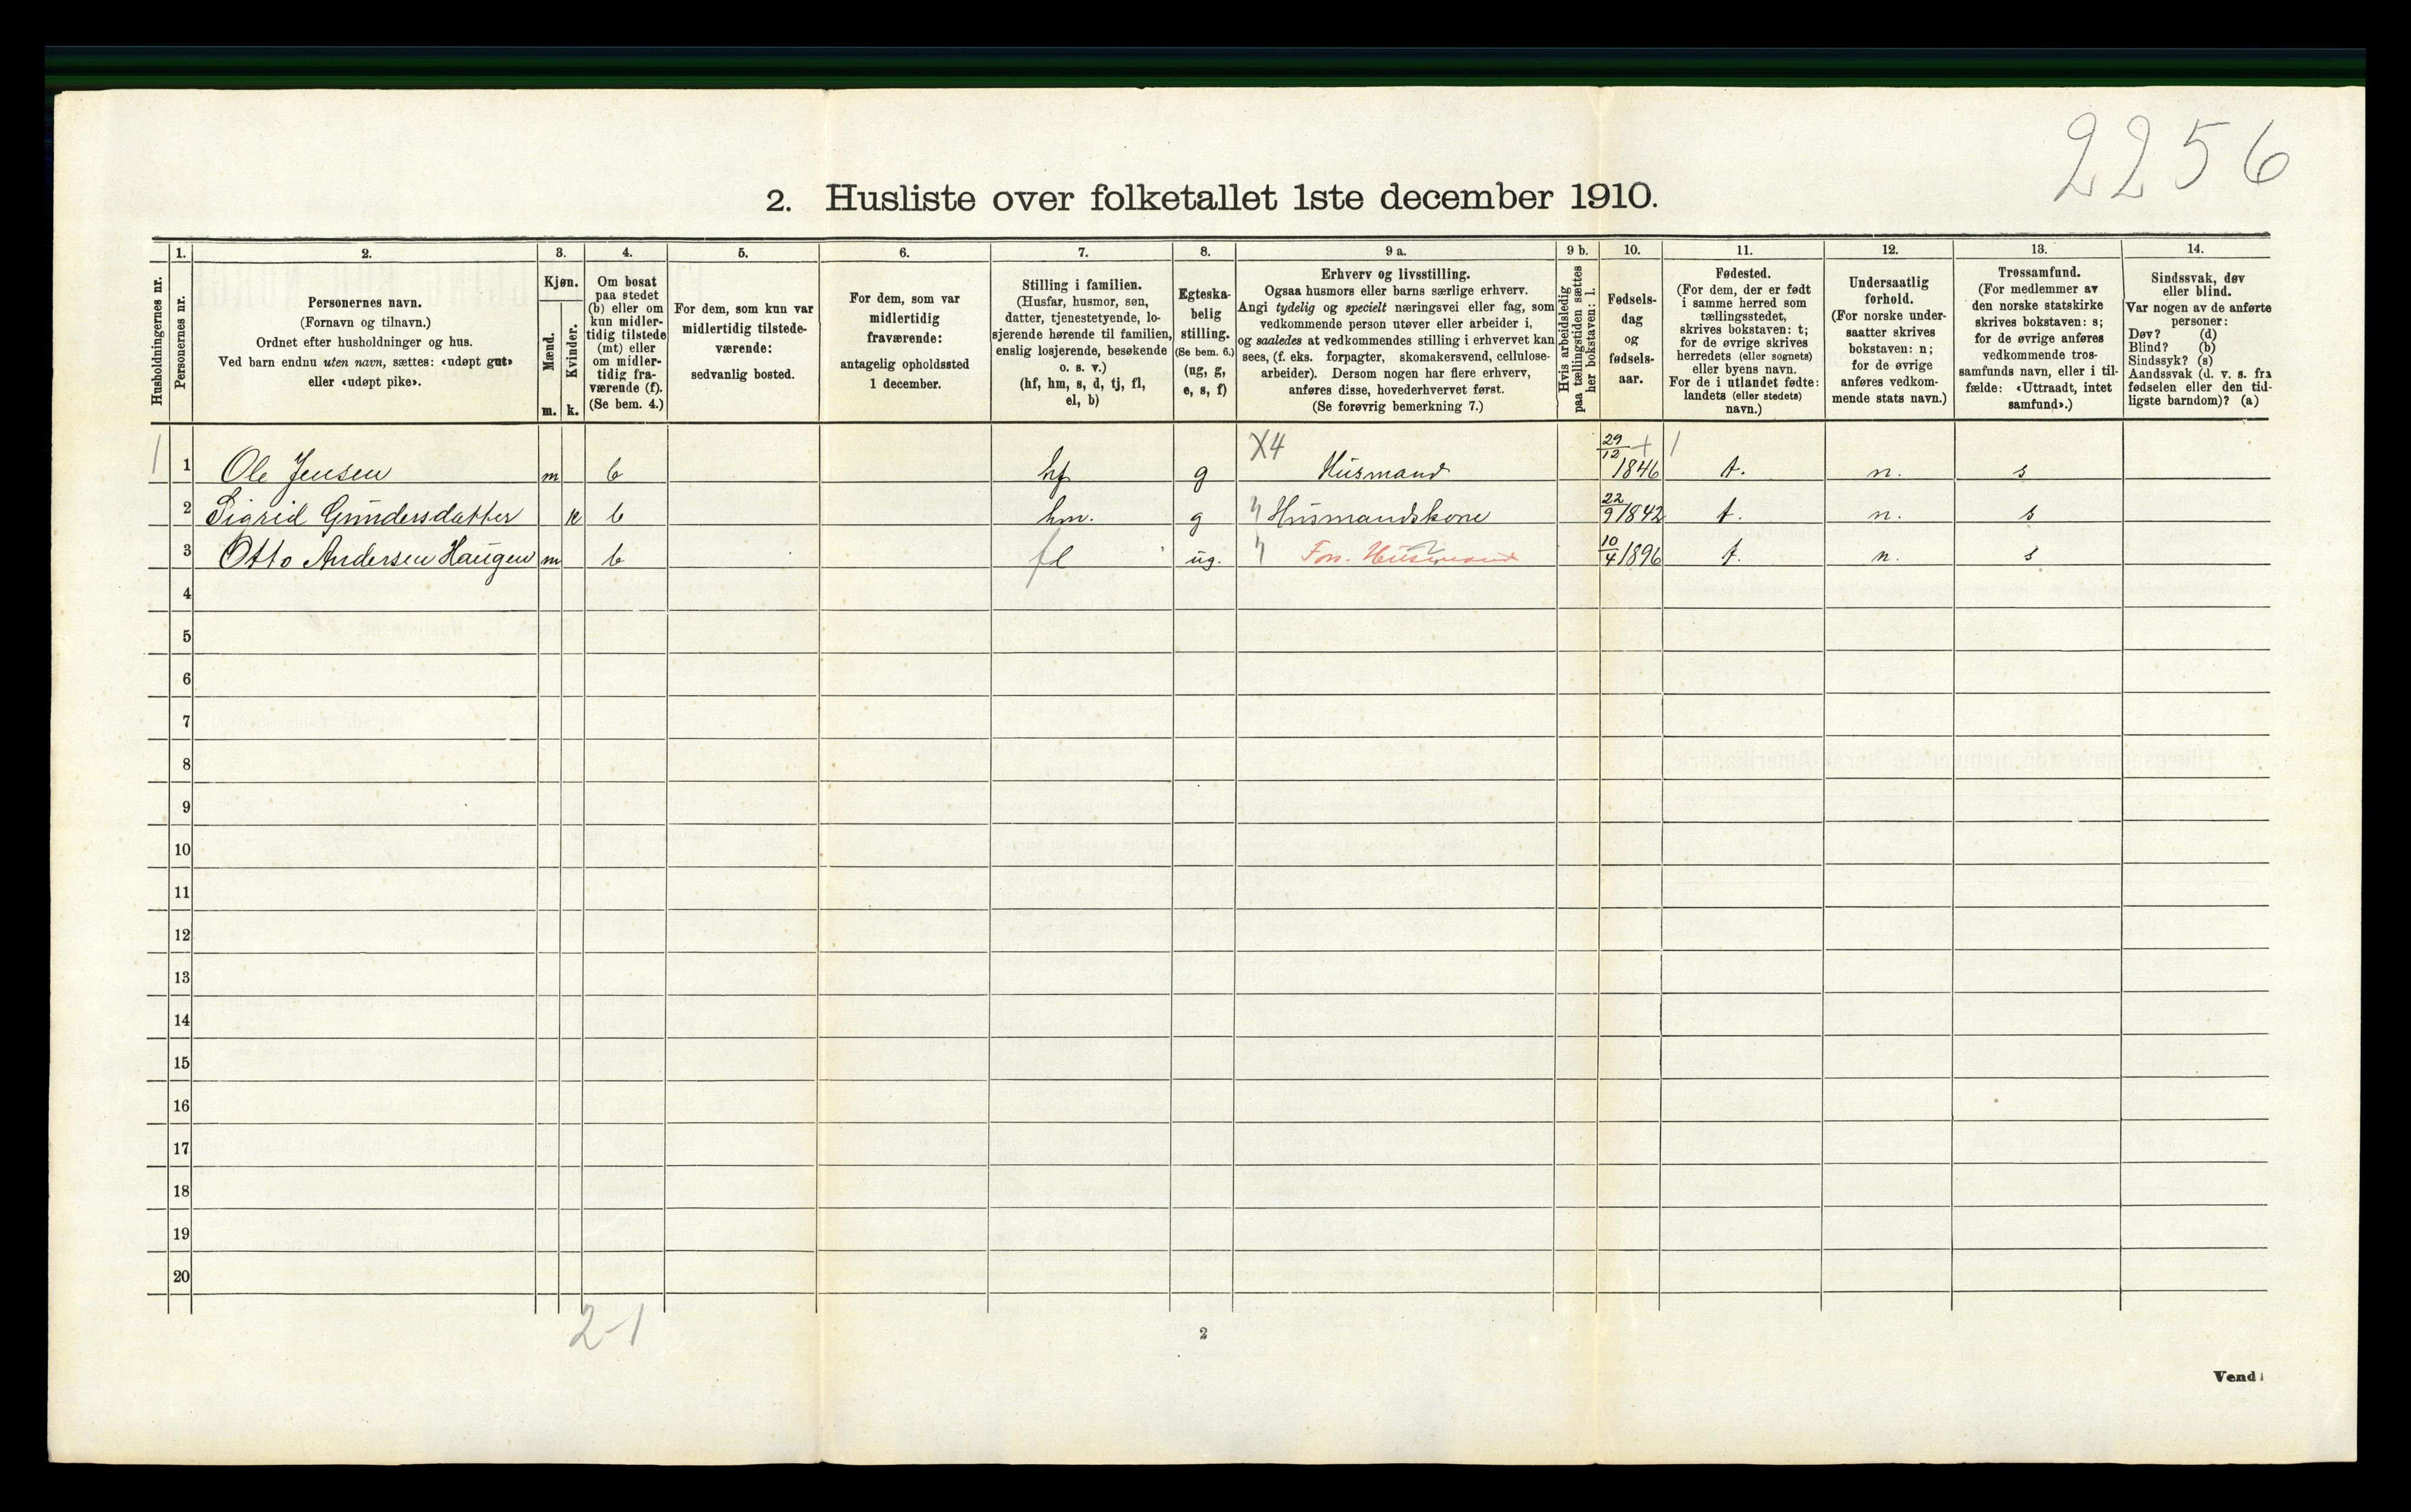 2256
2. Husliste over folketallet 1ste december 1910.
Husholdningernes nr.
1.
Personernes nr.
2.
Personernes navn.
(Fornavn og tilnavn.)
Ordnet efter husholdninger og hus.
Ved barn endnu uten navn, sættes: «udøpt gut»
eller «udøpt pike».
3.
Kjøn.
Mænd.
m.
Kvinder.
k.
4.
Om bosat
paa stedet
(b) eller om
kun midler-
tidig tilstede
(mt) eller
om midler-
tidig fra-
værende (f).
(Se bem. 4.)
5.
For dem, som kun var
midlertidig tilstede-
værende:
sedvanlig bosted.
6.
For dem, som var
midlertidig
fraværende:
antagelig opholdssted
1 december.
7.
Stilling i familien.
(Husfar, husmor, søn,
datter, tjenestetyende, lo-
sjerende hørende til familien,
enslig losjerende, besøkende
o. s. v.)
(hf, hm, s, d, tj, fl,
el, b)
8.
Egteska-
belig
stilling.
(Se bem. 6.)
(ug, g,
e, s, f)
9 a.
Erhverv og livsstilling.
Ogsaa husmors eller barns særlige erhverv.
Angi tydelig og specielt næringsvei eller fag, som
vedkommende person utøver eller arbeider i,
og saaledes at vedkommendes stilling i erhvervet kan
sees, (f. eks. forpagter, skomakersvend, cellulose-
arbeider). Dersom nogen har flere erhverv,
anføres disse, hovederhvervet først.
(Se forøvrig bemerkning 7.)
9 b.
Hvis arbeidsledig
paa tællingstiden sættes
her bokstaven: l.
10.
Fødsels-
dag
og
fødsels-
aar.
11.
Fødested.
(For dem, der er født
i samme herred som
tællingsstedet,
skrives bokstaven: t;
for de øvrige skrives
herredets (eller sognets)
eller byens navn.
For de i utlandet fødte:
landets (eller stedets)
navn.)
12.
Undersaatlig
forhold.
(For norske under-
saatter skrives
bokstaven: n;
for de øvrige
anføres vedkom-
mende stats navn.)
13.
Trossamfund.
(For medlemmer av
den norske statskirke
skrives bokstaven: s;
for de øvrige anføres
vedkommende tros-
samfunds navn, eller i til-
fælde: «Uttraadt, intet
samfund».)
14.
Sindssvak, døv
eller blind.
Var nogen av de anførte
personer:
Døv? (d)
Blind? (b)
Sindssyk? (s)
Aandssvak (d. v. s. fra
fødselen eller den tid-
ligste barndom)? (a)
1 1 Ole Jensen m b hf g X4 Husmand 29/12 1846 + 1 t. n. s
2 Sigrid Gundersdatter k b hm. g Husmandskone 22/9 1842 t. n. s
3 Otto Andersen Haugen m b fl ug. Fors. Husmand 10/4 1896 t. n. s
4
5
6
7
8
9
10
11
12
13
14
15
16
17
18
19
20
2-1
2
Vend!